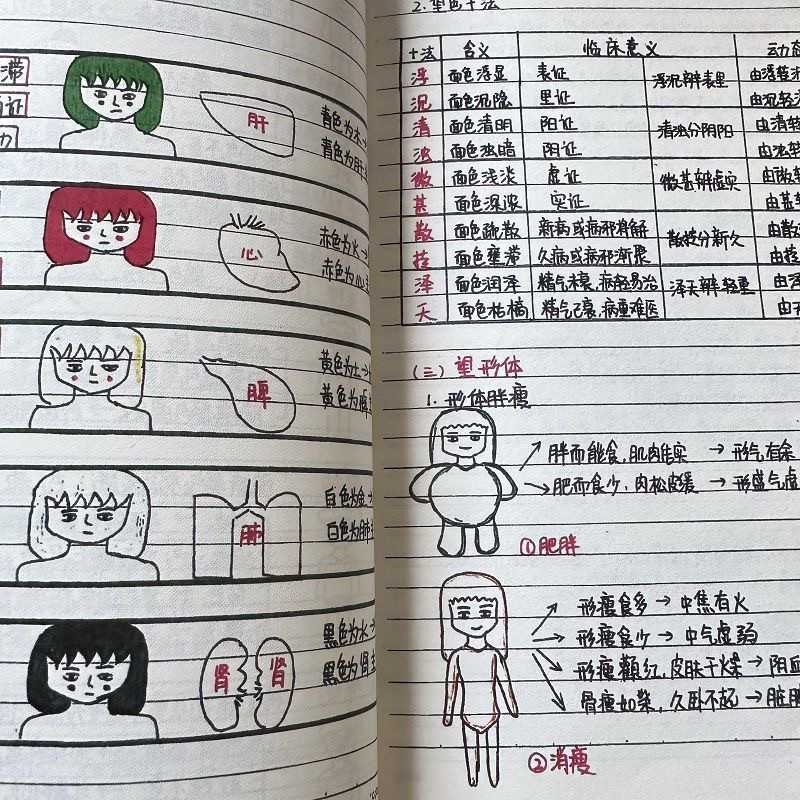 滞
证
力
肝
青色为木→
青色为肝
心
赤色为火→
赤色为心
脾
黄色为土→
黄色为脾
肺
白色为金→
白色为肺
肾 肾
黑色为水→
黑色为肾
2. 望色十法
十法 含义 临床意义 动态
浮 面色浮显 表证 浮沉辨表里 由浮转沉
沉 面色沉隐 里证 由沉转浮
清 面色清明 阳证 清浊分阴阳 由清转
浊 面色浊暗 阳证 由浊转
微 面色浅淡 虚证 微甚辨虚实 由微转
甚 面色深浓 实证 由甚转
散 面色疏散 新病或病邪将解 散抟分新久 由散
抟 面色壅滞 久病或病邪渐聚 由抟
泽 面色润泽 精气未衰,病轻易治 泽夭辨轻重 由泽
夭 面色枯槁 精气已衰,病重难医 由夭
(三)望形体
1. 形体胖瘦
胖而能食,肌肉结实 → 形气有余
肥而食少,肉松皮缓 → 形盛气虚
①肥胖
形瘦食多 → 中焦有火
形瘦食少 → 中气虚弱
形瘦颧红,皮肤干燥 → 阴血
骨瘦如柴,久卧不起 → 脏腑
②消瘦